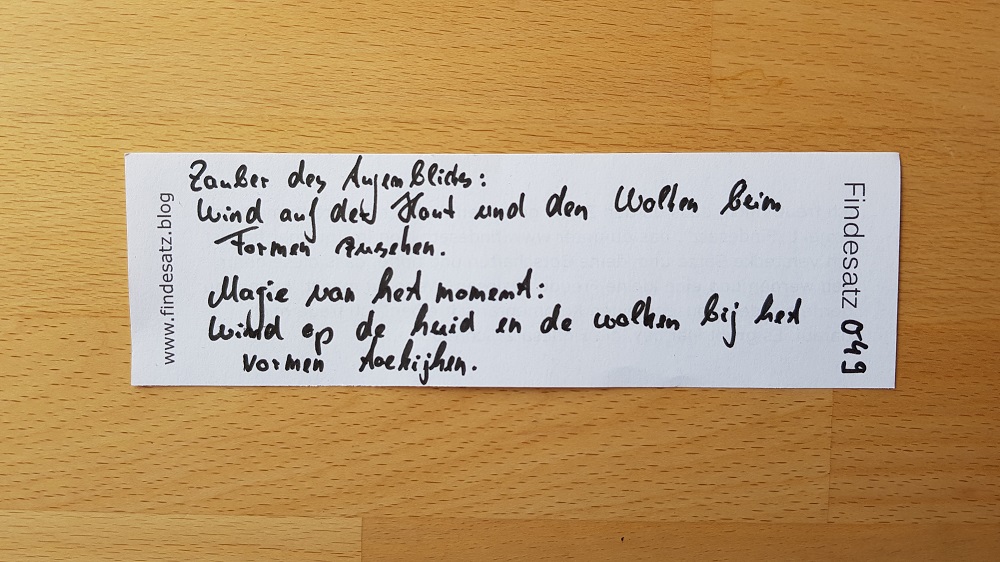 www.findesatz.blog
Zauber des Augenblicks:
Wind auf der Haut und den Wolken beim
Formen zusehen.
Magie van het moment:
Wind op de huid en de wolken bij het
vormen toekijken.
Findesatz 049